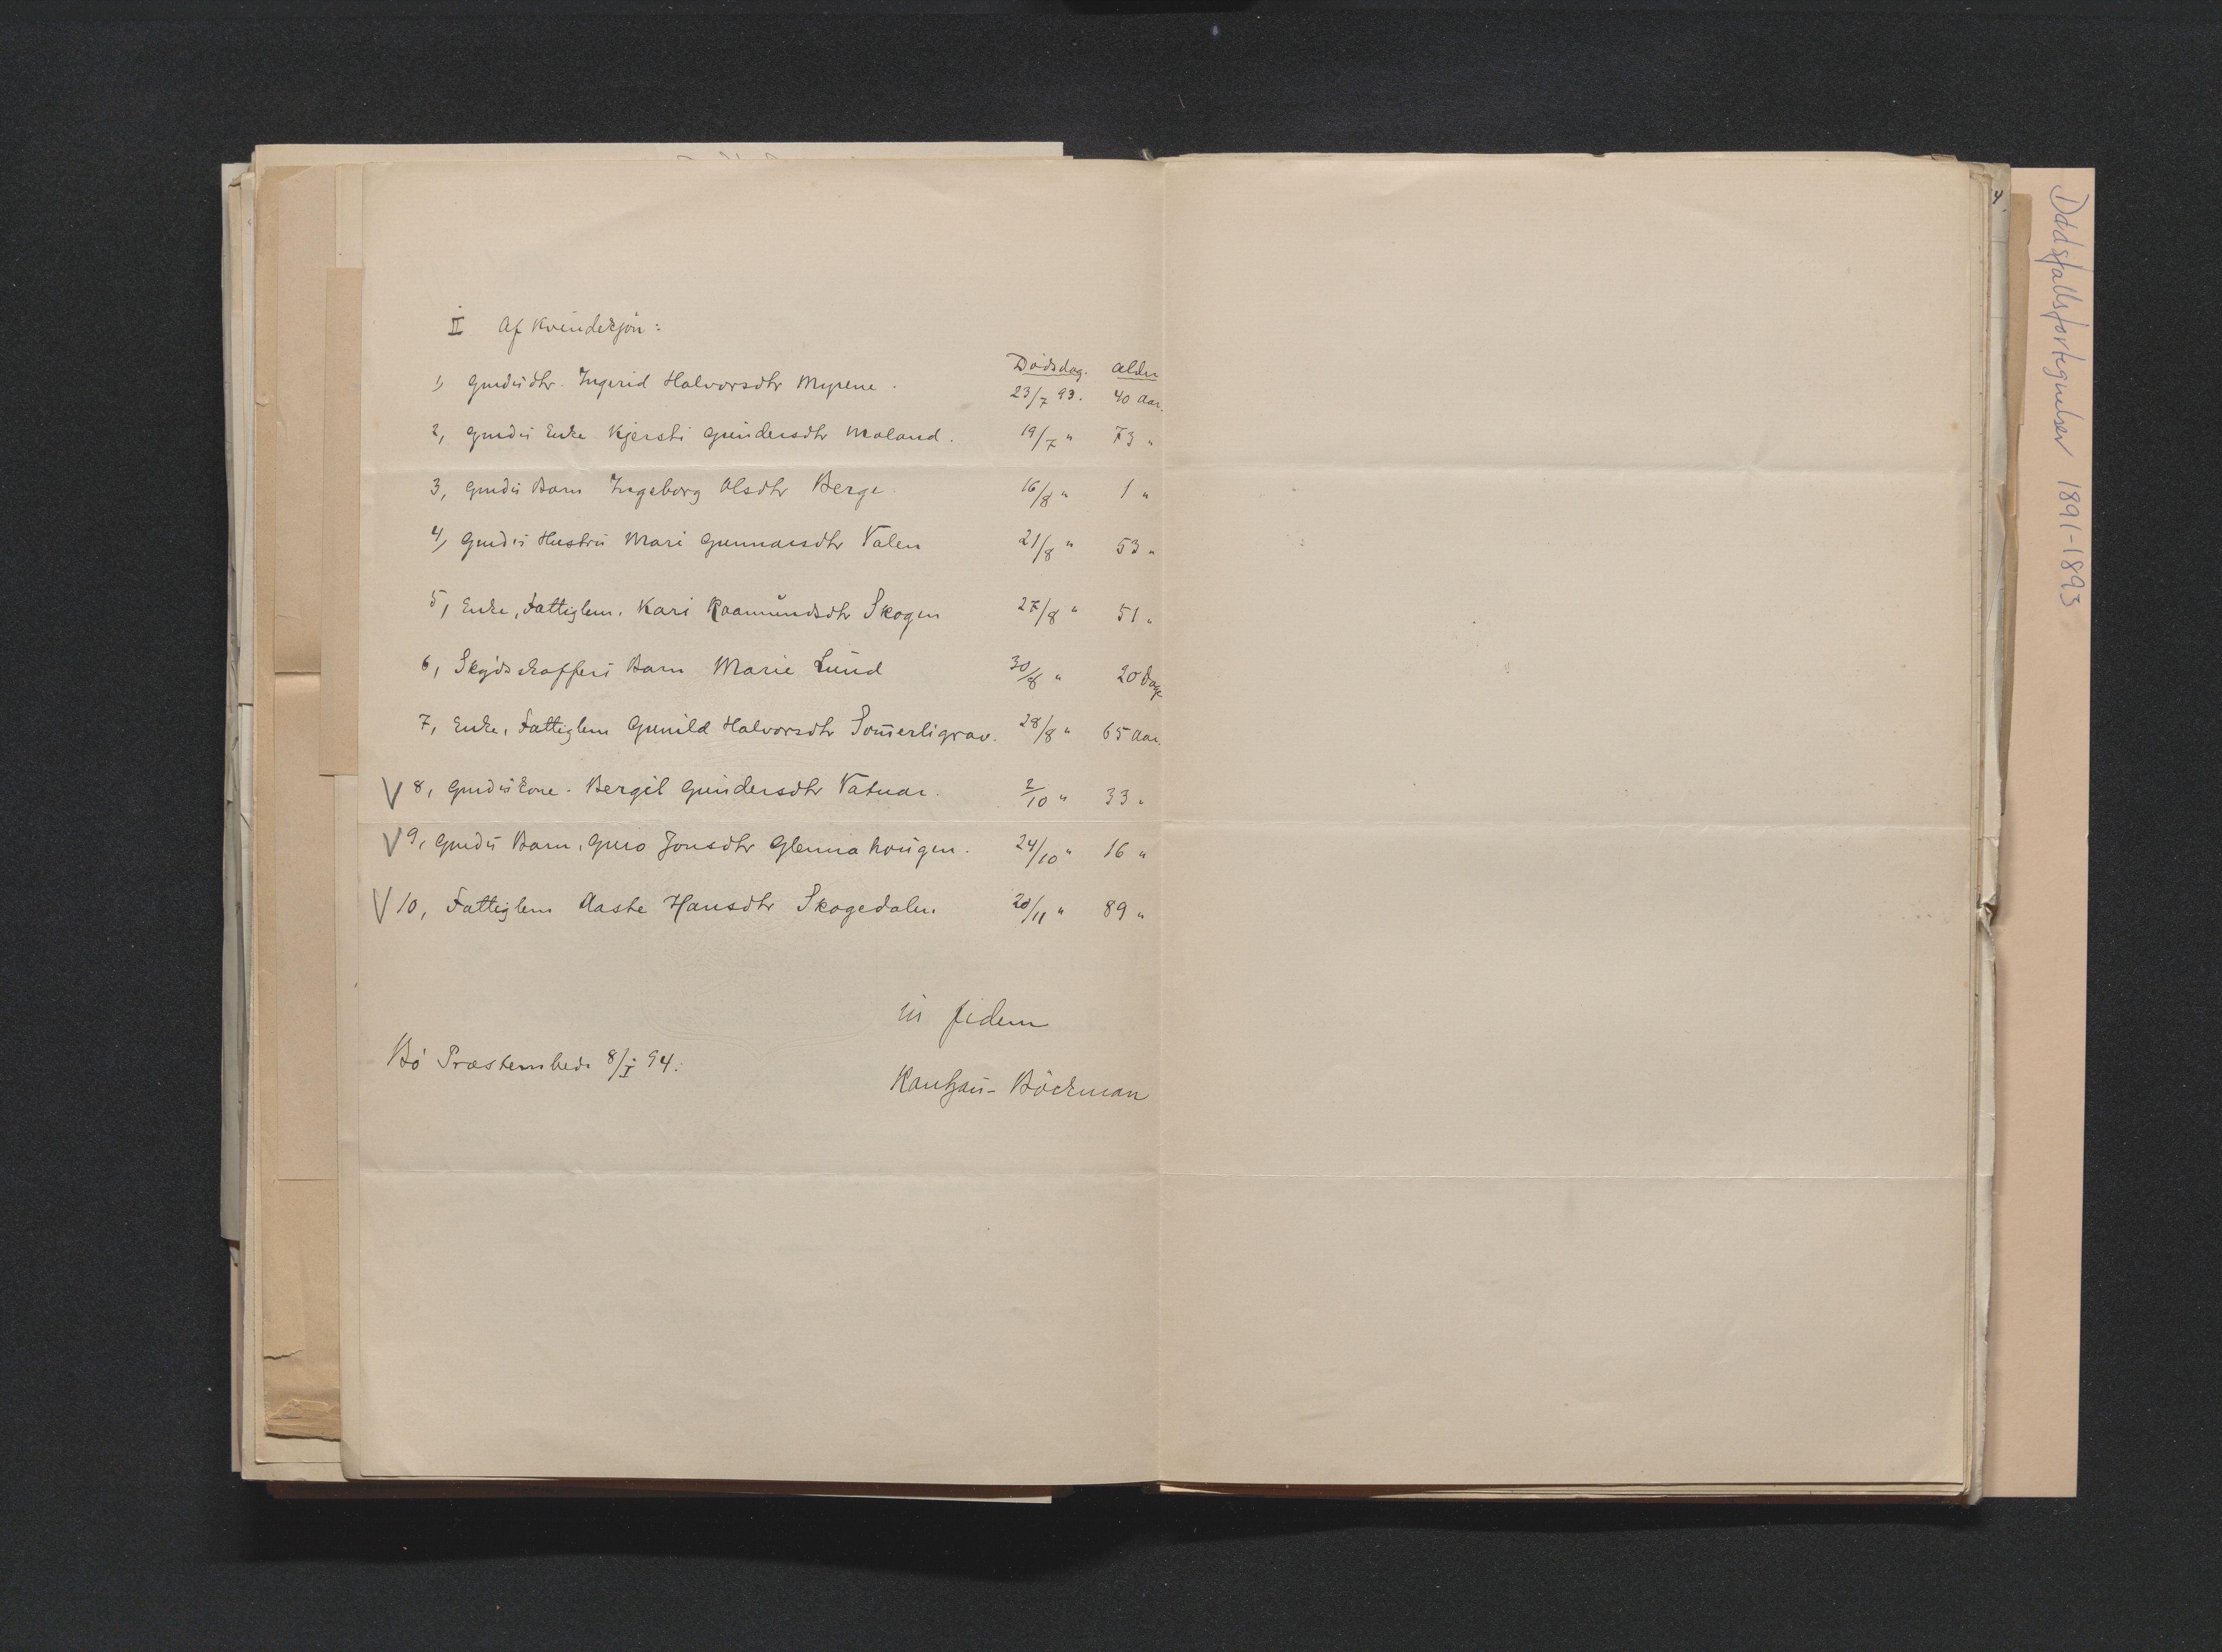 II Af Kvindekjön:
Dödsdag. Alder
1, Gmdsdtr. Ingerid Halvorsdtr Myrene. 23/7 93. 40 Aar.
2, Gmds Enke Kjersti Gundersdtr Moland. 19/7 " 73 "
3, Gmds Barn Ingeborg Olsdtr Berge 16/8 " 1 "
4, Gmds Hustru Mari Gunnarsdtr Valen 21/8 " 53 "
5, Enke, Fattiglem. Kari Raamundsdtr Skogen 27/8 " 51 "
6, Skydsskaffers Barn Marie Lund 30/8 " 20 Dage
7, Enke, Fattiglem Gunild Halvorsdtr Som̄erligrav. 28/8 " 65 Aar.
V 8, Gmds Kone. Bergit Gundersdtr Vatnar. 2/10 " 33 "
V 9, Gmds Barn, Guro Jonsdtr Glennahougen. 24/10 " 16 "
V 10, Fattiglem Aaste Hansdtr Skogedalen 20/11 " 89 "
in fidem
Bö Præstembede 8/I 94.
Rantzau-Böckman
4.
Dødsfallsfortegnelser 1891-1893